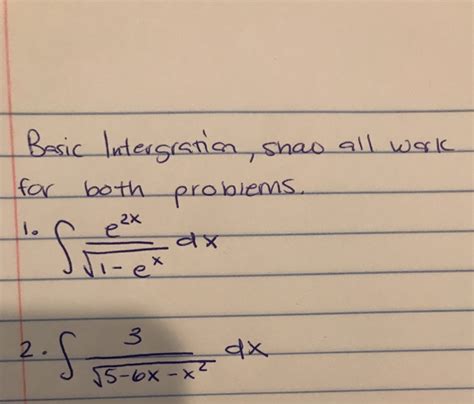 Basic Intergration, show all work
for both problems.
1. ∫ e^{2x} / √(1 - e^x) dx
2. ∫ 3 / √(5 - 6x - x²) dx